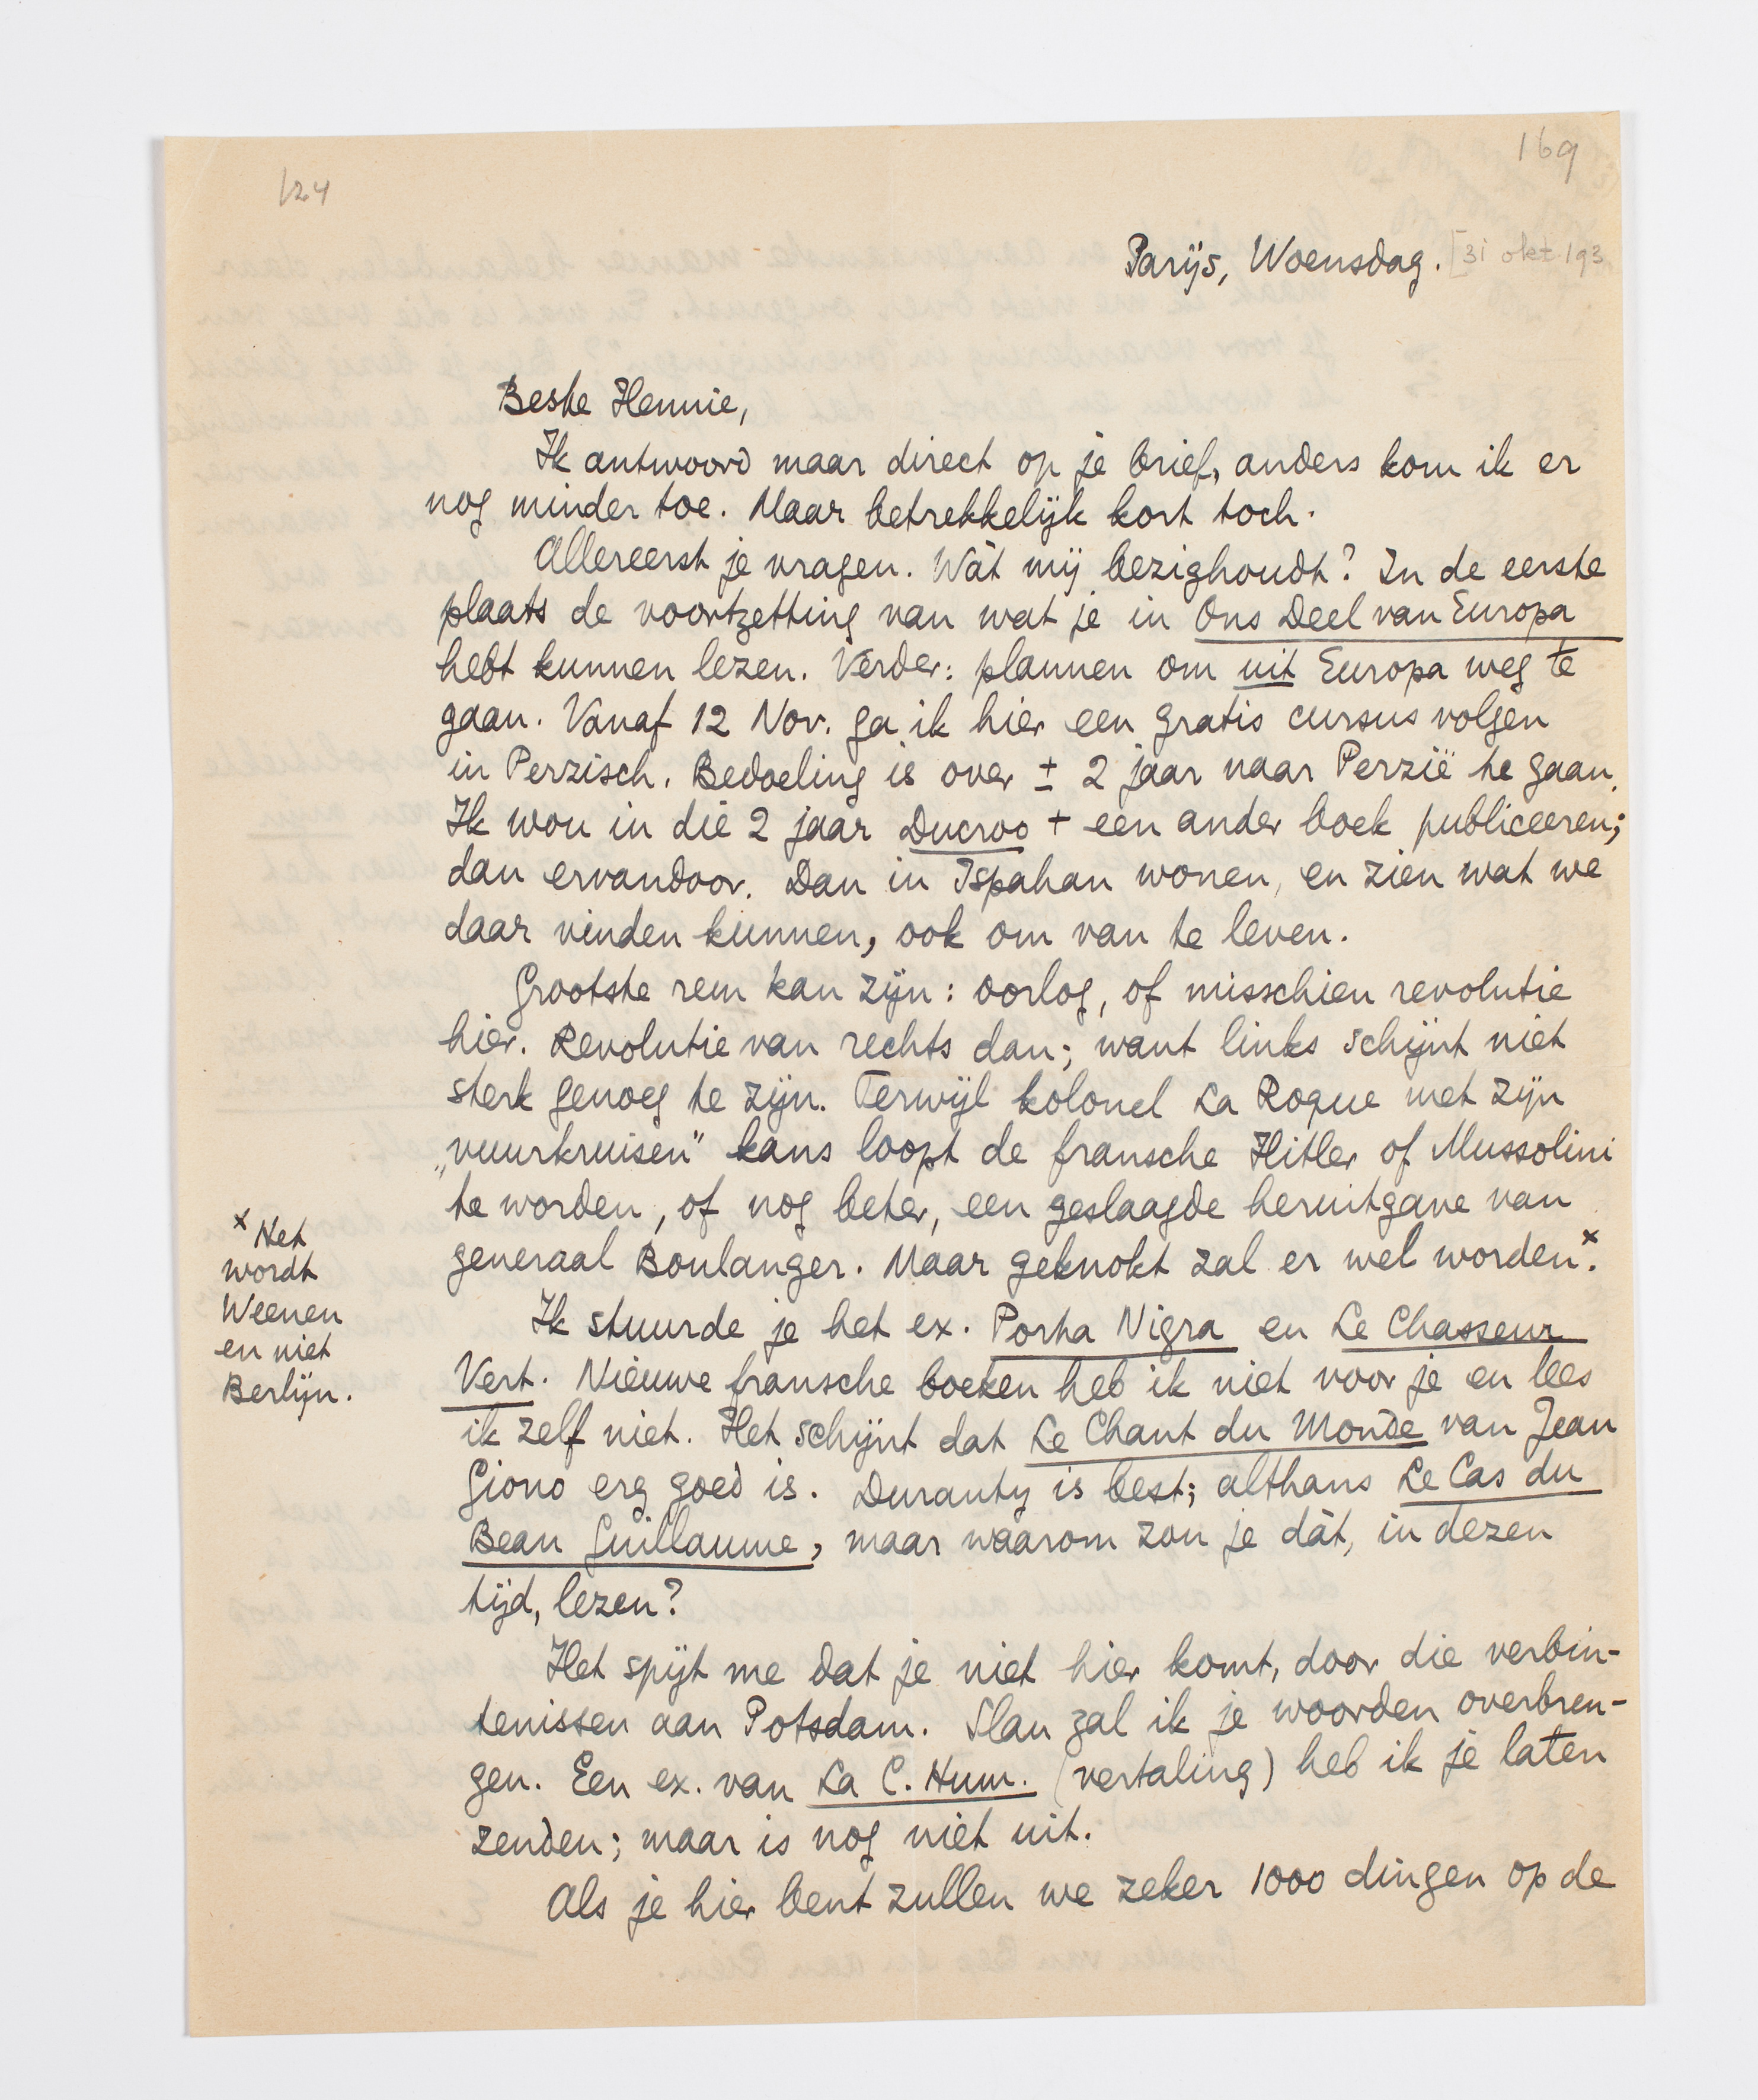 124
169
Parijs, Woensdag. [31 okt. 193
Beste Hennie,
Ik antwoord maar direct op je brief, anders kom ik er
nog minder toe. Maar betrekkelijk kort toch.
Allereerst je vragen. Wàt mij bezighoudt? In de eerste
plaats de voortzetting van wat je in Ons Deel van Europa
hebt kunnen lezen. Verder: plannen om uit Europa weg te
gaan. Vanaf 12 Nov. ga ik hier een gratis cursus volgen
in Perzisch. Bedoeling is over ± 2 jaar naar Perzië te gaan.
Ik wou in die 2 jaar Ducroo + een ander boek publiceeren;
dan ervandoor. Dan in Ispahan wonen, en zien wat we
daar vinden kunnen, ook om van te leven.
Grootste rem kan zijn: oorlog, of misschien revolutie
hier. Revolutie van rechts dan; want links schijnt niet
sterk genoeg te zijn. Terwijl kolonel La Roque met zijn
„vuurkruisen" kans loopt de fransche Hitler of Mussolini
te worden, of nog beter, een geslaagde heruitgave van
generaal Boulanger. Maar geknokt zal er wel worden.x
x Het
wordt
Weenen
en niet
Berlijn.
Ik stuurde je het ex. Porta Nigra en Le Chasseur
Vert. Nieuwe fransche boeken heb ik niet voor je en lees
ik zelf niet. Het schijnt dat Le Chant du Monde van Jean
Giono erg goed is. Duranty is best; althans Le Cas du
Beau Guillaume, maar waarom zou je dàt, in dezen
tijd, lezen?
Het spijt me dat je niet hier komt, door die verbin-
tenissen aan Potsdam. Slau zal ik je woorden overbren-
gen. Een ex. van La C. Hum. (vertaling) heb ik je laten
zenden; maar is nog niet uit.
Als je hier bent zullen we zeker 1000 dingen op de